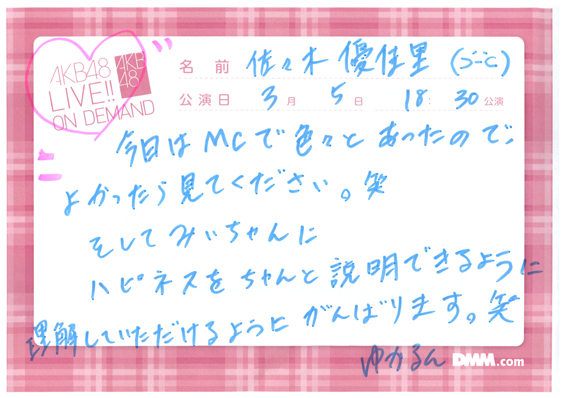 AKB48
LIVE!!
ON DEMAND
AKB
48
名前 佐々木 優佳里
公演日 3月 5日 18:30公演
今日はMCで色々とあったので、
よかったら見てください。笑
そしてみぃちゃんに
ハピネスをちゃんと説明できるように
理解していただけるようにがんばります。笑
ゆかるん
DMM.com